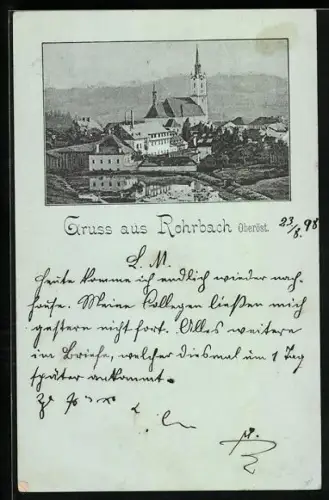 Gruss aus Rohrbach Oberöst.
23/8. 98
L. M.
Heute komme ich endlich wieder nach-
hause. Meine Kollegen ließen mich
gestern nicht fort. Alles weitere
im Briefe, welcher diesmal um 1 Tag
später ankommt.